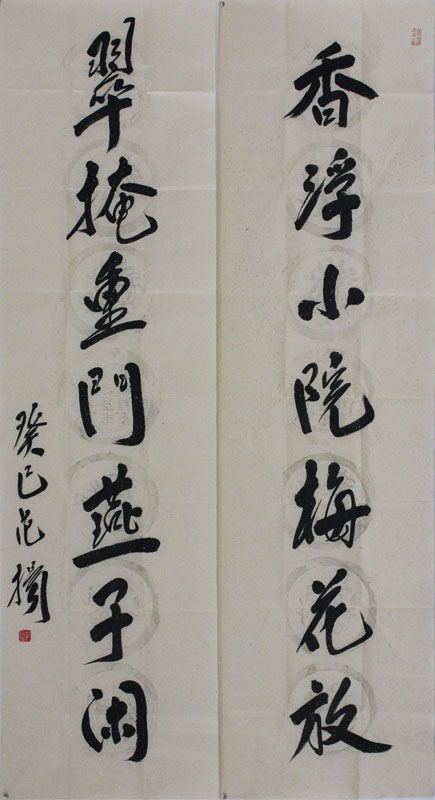 香浮小院梅花放
翠掩重門燕子闲
癸巳范